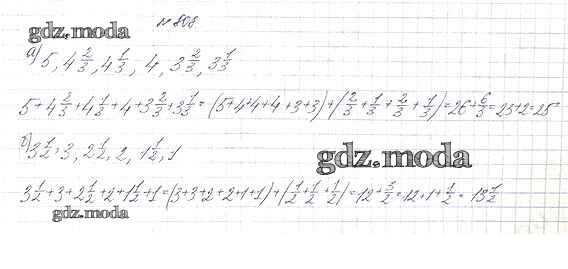 № 808
gdz.moda
а) 5, 4 2/3, 4 1/3, 4, 3 2/3, 3 1/3
5 + 4 2/3 + 4 1/3 + 4 + 3 2/3 + 3 1/3 = (5+4+4+4+3+3) + (2/3 + 1/3 + 2/3 + 1/3) = 26 + 6/3 = 23+2 = 25
б) 3 1/2, 3, 2 1/2, 2, 1 1/2, 1
gdz.moda
3 1/2 + 3 + 2 1/2 + 2 + 1 1/2 + 1 = (3+3+2+2+1+1) + (1/2 + 1/2 + 1/2) = 12 + 3/2 = 12+1+ 1/2 = 13 1/2
gdz.moda